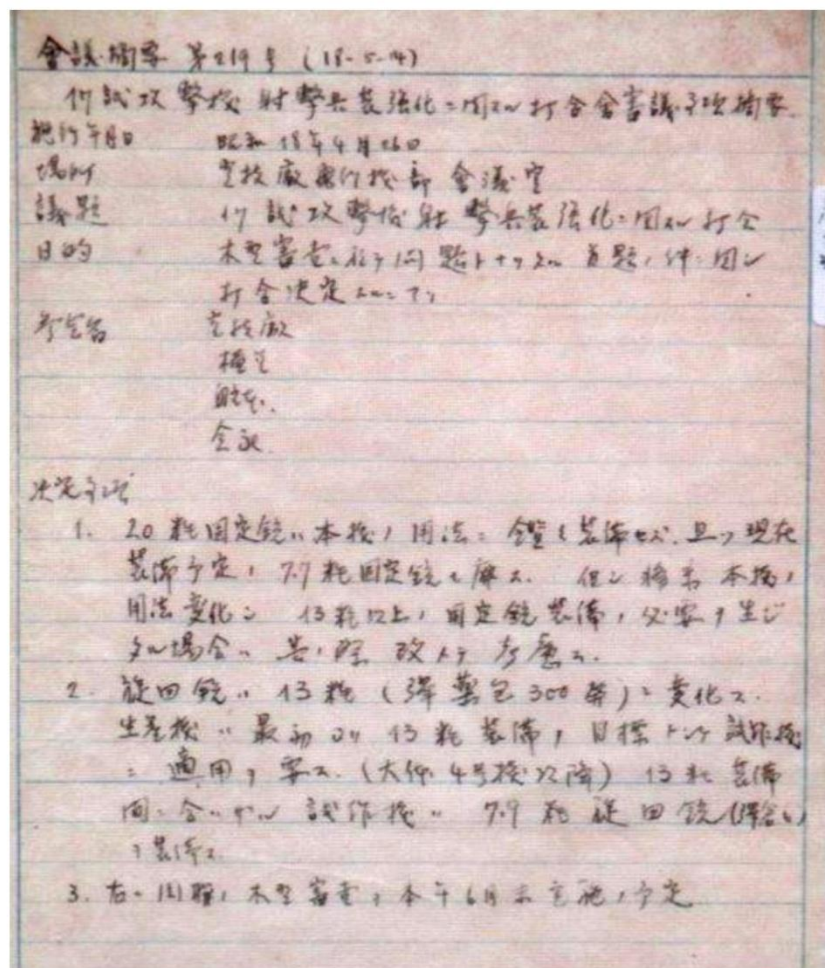 會議摘要 第219号 (18-5-4)
17試攻撃機 射撃兵装強化ニ関スル打合会議事項摘要
施行年月日 昭和18年4月26日
場所 空技廠飛行機部 會議室
議題 17試攻撃機射撃兵装強化ニ関スル打合
目的 木型審査ニ於テ問題トナリタル首題ノ件ニ関シ
打合決定スルニアリ
空技廠
決定事項
1. 20粍固定銃ハ本機ノ用法ニ鑑ミ装備セズ. 且ツ現在
装備予定ノ 7.7粍固定銃モ廃ス. 但シ将来本機ノ
用法変化シ 13粍以上ノ固定銃装備ノ必要ヲ生ジ
タル場合ハ 其ノ際 改メテ考慮ス.
2. 旋回銃ハ 13粍 (弾薬包300発)ニ変化ス.
生産機ハ最初ヨリ 13粍装備ヲ目標トシテ試作機
ニ適用ヲ要ス. (大体4号機以降) 13粍装備
間ニ合ハザル試作機ハ 7.9粍旋回銃
ヲ装備ス
3. 右ニ関スル木型審査ハ本年6月末実施ノ予定